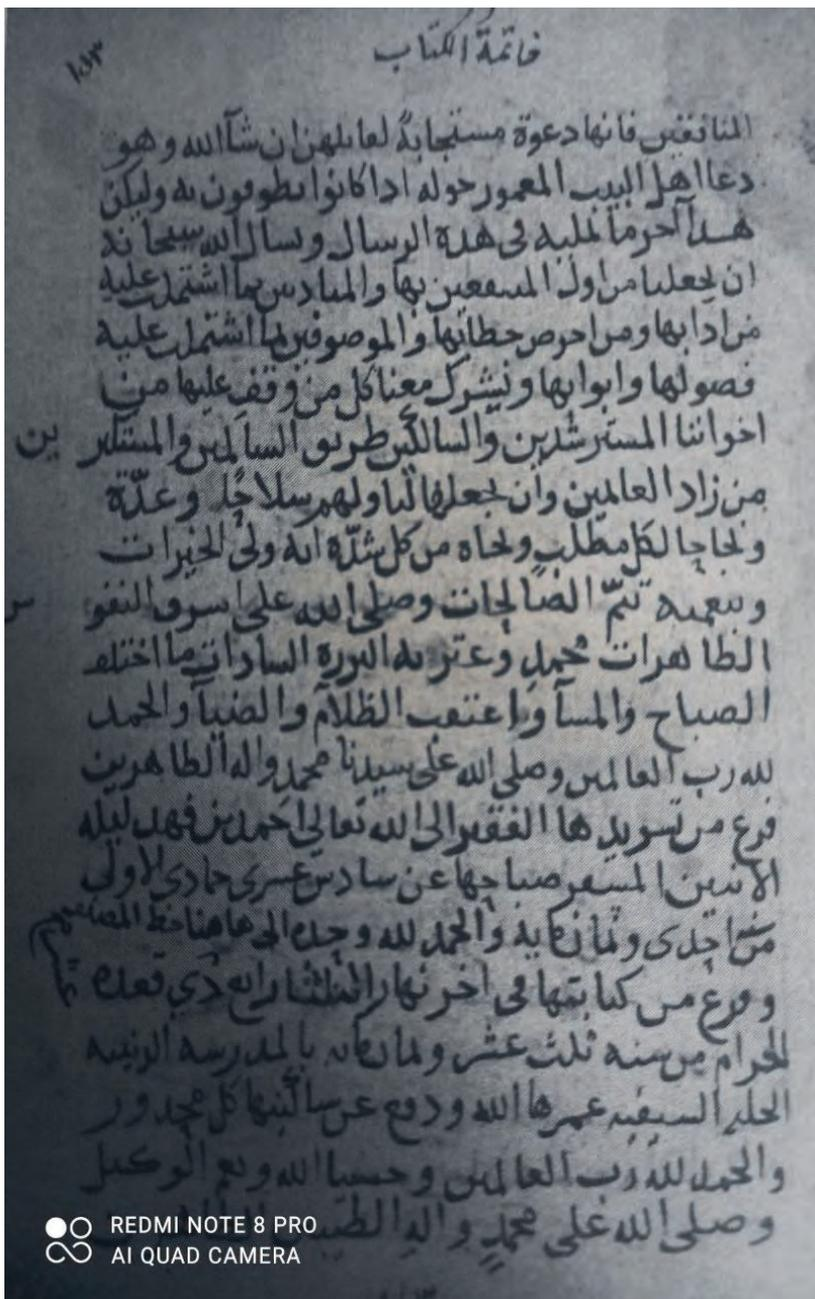 خاتمة الكتاب
١٥٣
المنافقين فانها دعوة مستجابة لقايلهن ان شآ الله وهو
دعا اهل البيت المعمور حوله اذا كانوا يطوفون به وليكن
هذا آخر ما نمليه فى هذه الرسال ونسال الله سبحانه
ان يجعلنا من اول المنتفعين بها والمتادبين بما اشتملت عليه
من ادابها ومن احرص حطابها والموصوفين بما اشتملت عليه
فصولها وابوابها ونشرك معنا كل من وقف عليها من
اخواننا المسترشدين والسالكين طريق السالمين والمستكثرين
من زاد العالمين وان يجعلها لنا ولهم سلاحا وعدّة
ونجاحا لكل مطلب ونجاة من كل شدّة انه ولى الخيرات
وبنعمته تتمّ الصالحات وصلى الله على اشرف النفوس
الطاهرات محمدٍ وعترته البررة السادات ما اختلف
الصباح والمسآ واعتقب الظلام والضيآ والحمد
لله رب العالمين وصلى الله على سيدنا محمد واله الطاهرين
فرغ من تسويدها الفقير الى الله تعالى احمد بن فهد ليلة
الاثنين المسفر صباحها عن سادس عشرى جمادى الاولى
من سنة احدى وثمانمايه والحمد لله وحده الى هاهنا خط المصنف
وفرغ من كتابتها فى اخر نهار الثلثا رابع ذي قعدة
الحرام من سنه ثلث عشر وثمانمايه بالمدرسه الزينيه
الحليه السيفيه عمرها الله ودفع عن ساكنيها كل محذور
والحمد لله رب العالمين وحسبنا الله ونعم الوكيل
وصلى الله على محمدٍ واله الطيبين
REDMI NOTE 8 PRO
AI QUAD CAMERA